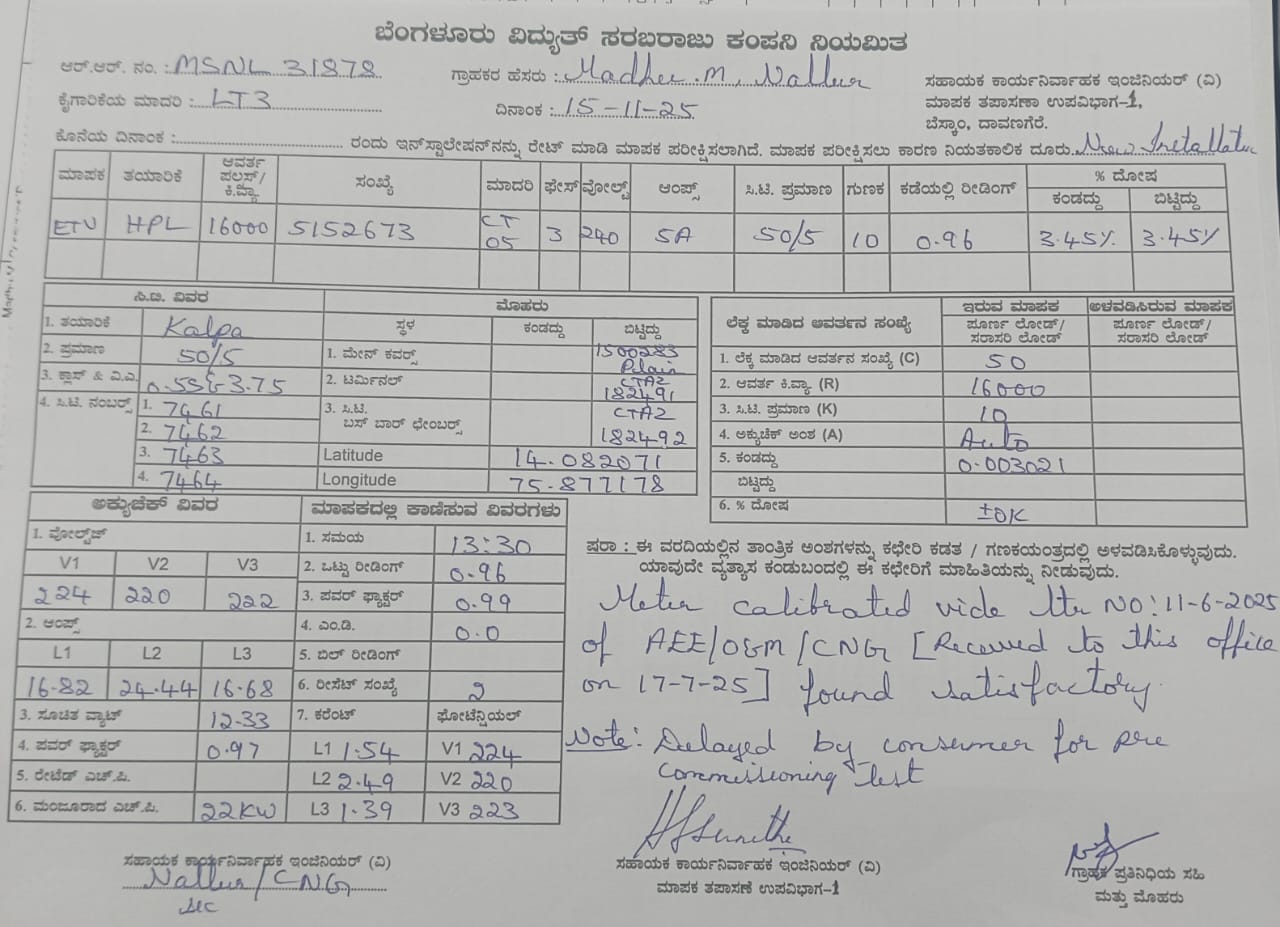 ಬೆಂಗಳೂರು ವಿದ್ಯುತ್ ಸರಬರಾಜು ಕಂಪನಿ ನಿಯಮಿತ
ಆರ್.ಆರ್. ನಂ. : MSNL 31878 ಗ್ರಾಹಕರ ಹೆಸರು : Madhu.M, Nallur
ಸಹಾಯಕ ಕಾರ್ಯನಿರ್ವಾಹಕ ಇಂಜಿನಿಯರ್ (ವಿ)
ಕೈಗಾರಿಕೆಯ ಮಾದರಿ : LT3 ದಿನಾಂಕ : 15-11-25
ಮಾಪಕ ತಪಾಸಣಾ ಉಪವಿಭಾಗ-1,
ಬೆಸ್ಕಾಂ, ದಾವಣಗೆರೆ.
ಕೊನೆಯ ದಿನಾಂಕ : ರಂದು ಇನ್‌ಸ್ಟಾಲೇಷನ್‌ನನ್ನು ರೇಟ್ ಮಾಡಿ ಮಾಪಕ ಪರೀಕ್ಷಿಸಲಾಗಿದೆ. ಮಾಪಕ ಪರೀಕ್ಷಿಸಲು ಕಾರಣ ನಿಯತಕಾಲಿಕ ದೂರು. New Installation
ಮಾಪಕ ತಯಾರಿಕೆ ಆವರ್ತ ಪಲಸ್/ ಕಿ.ವ್ಯಾ ಸಂಖ್ಯೆ ಮಾದರಿ ಫೇಸ್ ವೋಲ್ಟ್ ಆಂಪ್ಸ್ ಸಿ.ಟಿ. ಪ್ರಮಾಣ ಗುಣಕ ಕಡೆಯಲ್ಲಿ ರೀಡಿಂಗ್ % ದೋಷ
ಕಂಡದ್ದು ಬಿಟ್ಟಿದ್ದು
ETV HPL 16000 5152673 CT 05 3 240 5A 50/5 10 0.96 3.45% 3.45%
ಸಿ.ಟಿ. ವಿವರ ಮೊಹರು
1. ತಯಾರಿಕೆ Kalpa ಸ್ಥಳ ಕಂಡದ್ದು ಬಿಟ್ಟಿದ್ದು
2. ಪ್ರಮಾಣ 50/5 1. ಮೇನ್ ಕವರ್ಸ್ 1500283 Plain
3. ಕ್ಲಾಸ್ & ವಿ.ಎ. 0.5S & 3.75 2. ಟರ್ಮಿನಲ್ CTA2 182491
4. ಸಿ.ಟಿ. ನಂಬರ್ಸ್ 1. 7461 3. ಸಿ.ಟಿ. ಬಸ್ ಬಾರ್ ಛೇಂಬರ್ಸ್ CTA2 182492
2. 7462
3. 7463 Latitude 14.082071
4. 7464 Longitude 75.877178
ಲೆಕ್ಕ ಮಾಡಿದ ಆವರ್ತನ ಸಂಖ್ಯೆ ಇರುವ ಮಾಪಕ ಅಳವಡಿಸಿರುವ ಮಾಪಕ
ಪೂರ್ಣ ಲೋಡ್/ ಸರಾಸರಿ ಲೋಡ್ ಪೂರ್ಣ ಲೋಡ್/ ಸರಾಸರಿ ಲೋಡ್
1. ಲೆಕ್ಕ ಮಾಡಿದ ಆವರ್ತನ ಸಂಖ್ಯೆ (C) 50
2. ಆವರ್ತ ಕಿ.ವ್ಯಾ (R) 16000
3. ಸಿ.ಟಿ. ಪ್ರಮಾಣ (K) 10
4. ಅಕ್ಯುಚೆಕ್ ಅಂಶ (A) Auto
5. ಕಂಡದ್ದು 0.003021
ಬಿಟ್ಟಿದ್ದು
6. % ದೋಷ ±OK
ಅಕ್ಯುಚೆಕ್ ವಿವರ ಮಾಪಕದಲ್ಲಿ ಕಾಣಿಸುವ ವಿವರಗಳು
1. ವೋಲ್ಟೇಜ್ 1. ಸಮಯ 13:30
V1 V2 V3 2. ಒಟ್ಟು ರೀಡಿಂಗ್ 0.96
224 220 222 3. ಪವರ್ ಫ್ಯಾಕ್ಟರ್ 0.99
2. ಆಂಪ್ಸ್ 4. ಎಂ.ಡಿ. 0.0
L1 L2 L3 5. ಬಿಲ್ ರೀಡಿಂಗ್
16.82 24.44 16.68 6. ರೀಸೆಟ್ ಸಂಖ್ಯೆ 2
3. ಸೂಚಿತ ವ್ಯಾಟ್ 12.33 7. ಕರೆಂಟ್ ಫೋಟೆನ್ಷಿಯಲ್
4. ಪವರ್ ಫ್ಯಾಕ್ಟರ್ 0.97 L1 1.54 V1 224
5. ರೇಟೆಡ್ ಎಚ್.ಪಿ. L2 2.49 V2 220
6. ಮಂಜೂರಾದ ಎಚ್.ಪಿ. 22KW L3 1.39 V3 223
ಷರಾ : ಈ ವರದಿಯಲ್ಲಿನ ತಾಂತ್ರಿಕ ಅಂಶಗಳನ್ನು ಕಛೇರಿ ಕಡತ / ಗಣಕಯಂತ್ರದಲ್ಲಿ ಅಳವಡಿಸಿಕೊಳ್ಳುವುದು.
ಯಾವುದೇ ವ್ಯತ್ಯಾಸ ಕಂಡುಬಂದಲ್ಲಿ ಈ ಕಛೇರಿಗೆ ಮಾಹಿತಿಯನ್ನು ನೀಡುವುದು.
Meter calibrated vide ltr NO: 11-6-2025
of AEE/O&M/CNG [Received to this office
on 17-7-25] found satisfactory.
Note: Delayed by consumer for pre
commissioning Test
ಸಹಾಯಕ ಕಾರ್ಯನಿರ್ವಾಹಕ ಇಂಜಿನಿಯರ್ (ವಿ)
Nallur/CNG
sec
ಸಹಾಯಕ ಕಾರ್ಯನಿರ್ವಾಹಕ ಇಂಜಿನಿಯರ್ (ವಿ)
ಮಾಪಕ ತಪಾಸಣೆ ಉಪವಿಭಾಗ-1
ಗ್ರಾಹಕ ಪ್ರತಿನಿಧಿಯ ಸಹಿ
ಮತ್ತು ಮೊಹರು